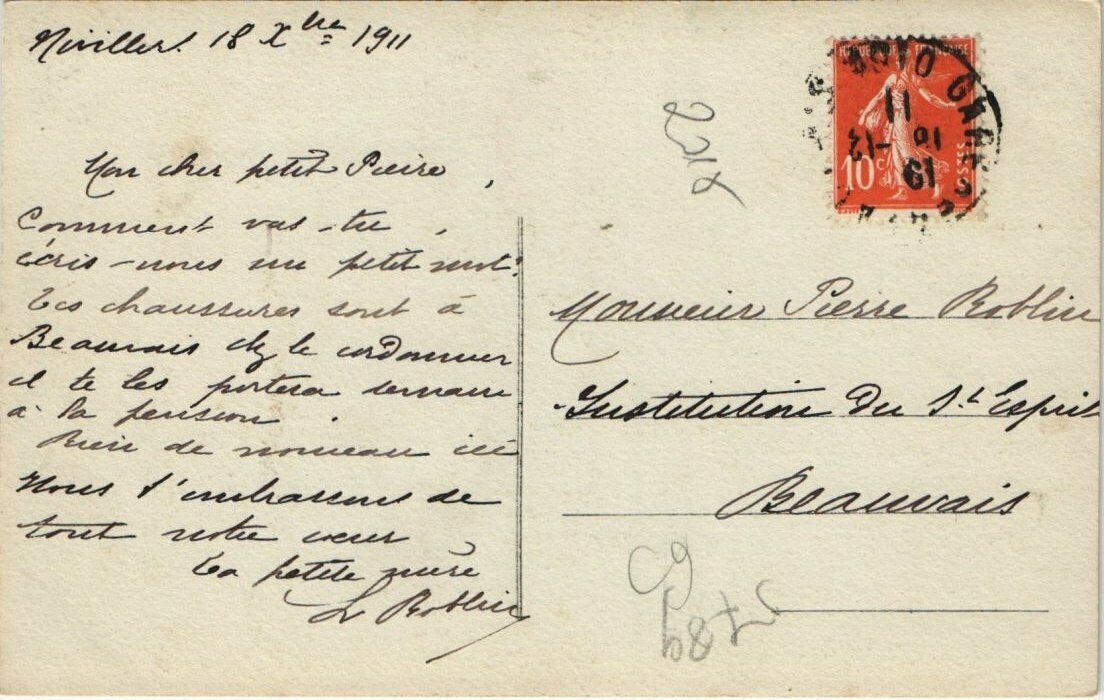 Nivillers. 18 Xbre 1911
Mon cher petit Pierre,
Comment vas-tu,
écris-nous un petit mot.
Tes chaussures sont à
Beauvais chez le cordonnier
il te les portera
à la pension.
Rien de nouveau ici
Nous t'embrassons de
tout notre cœur
Ta petite mère
L Roblin
RÉPUBLIQUE FRANÇAISE
10 c
POSTES
Monsieur Pierre Roblin
Institution du St Esprit
Beauvais